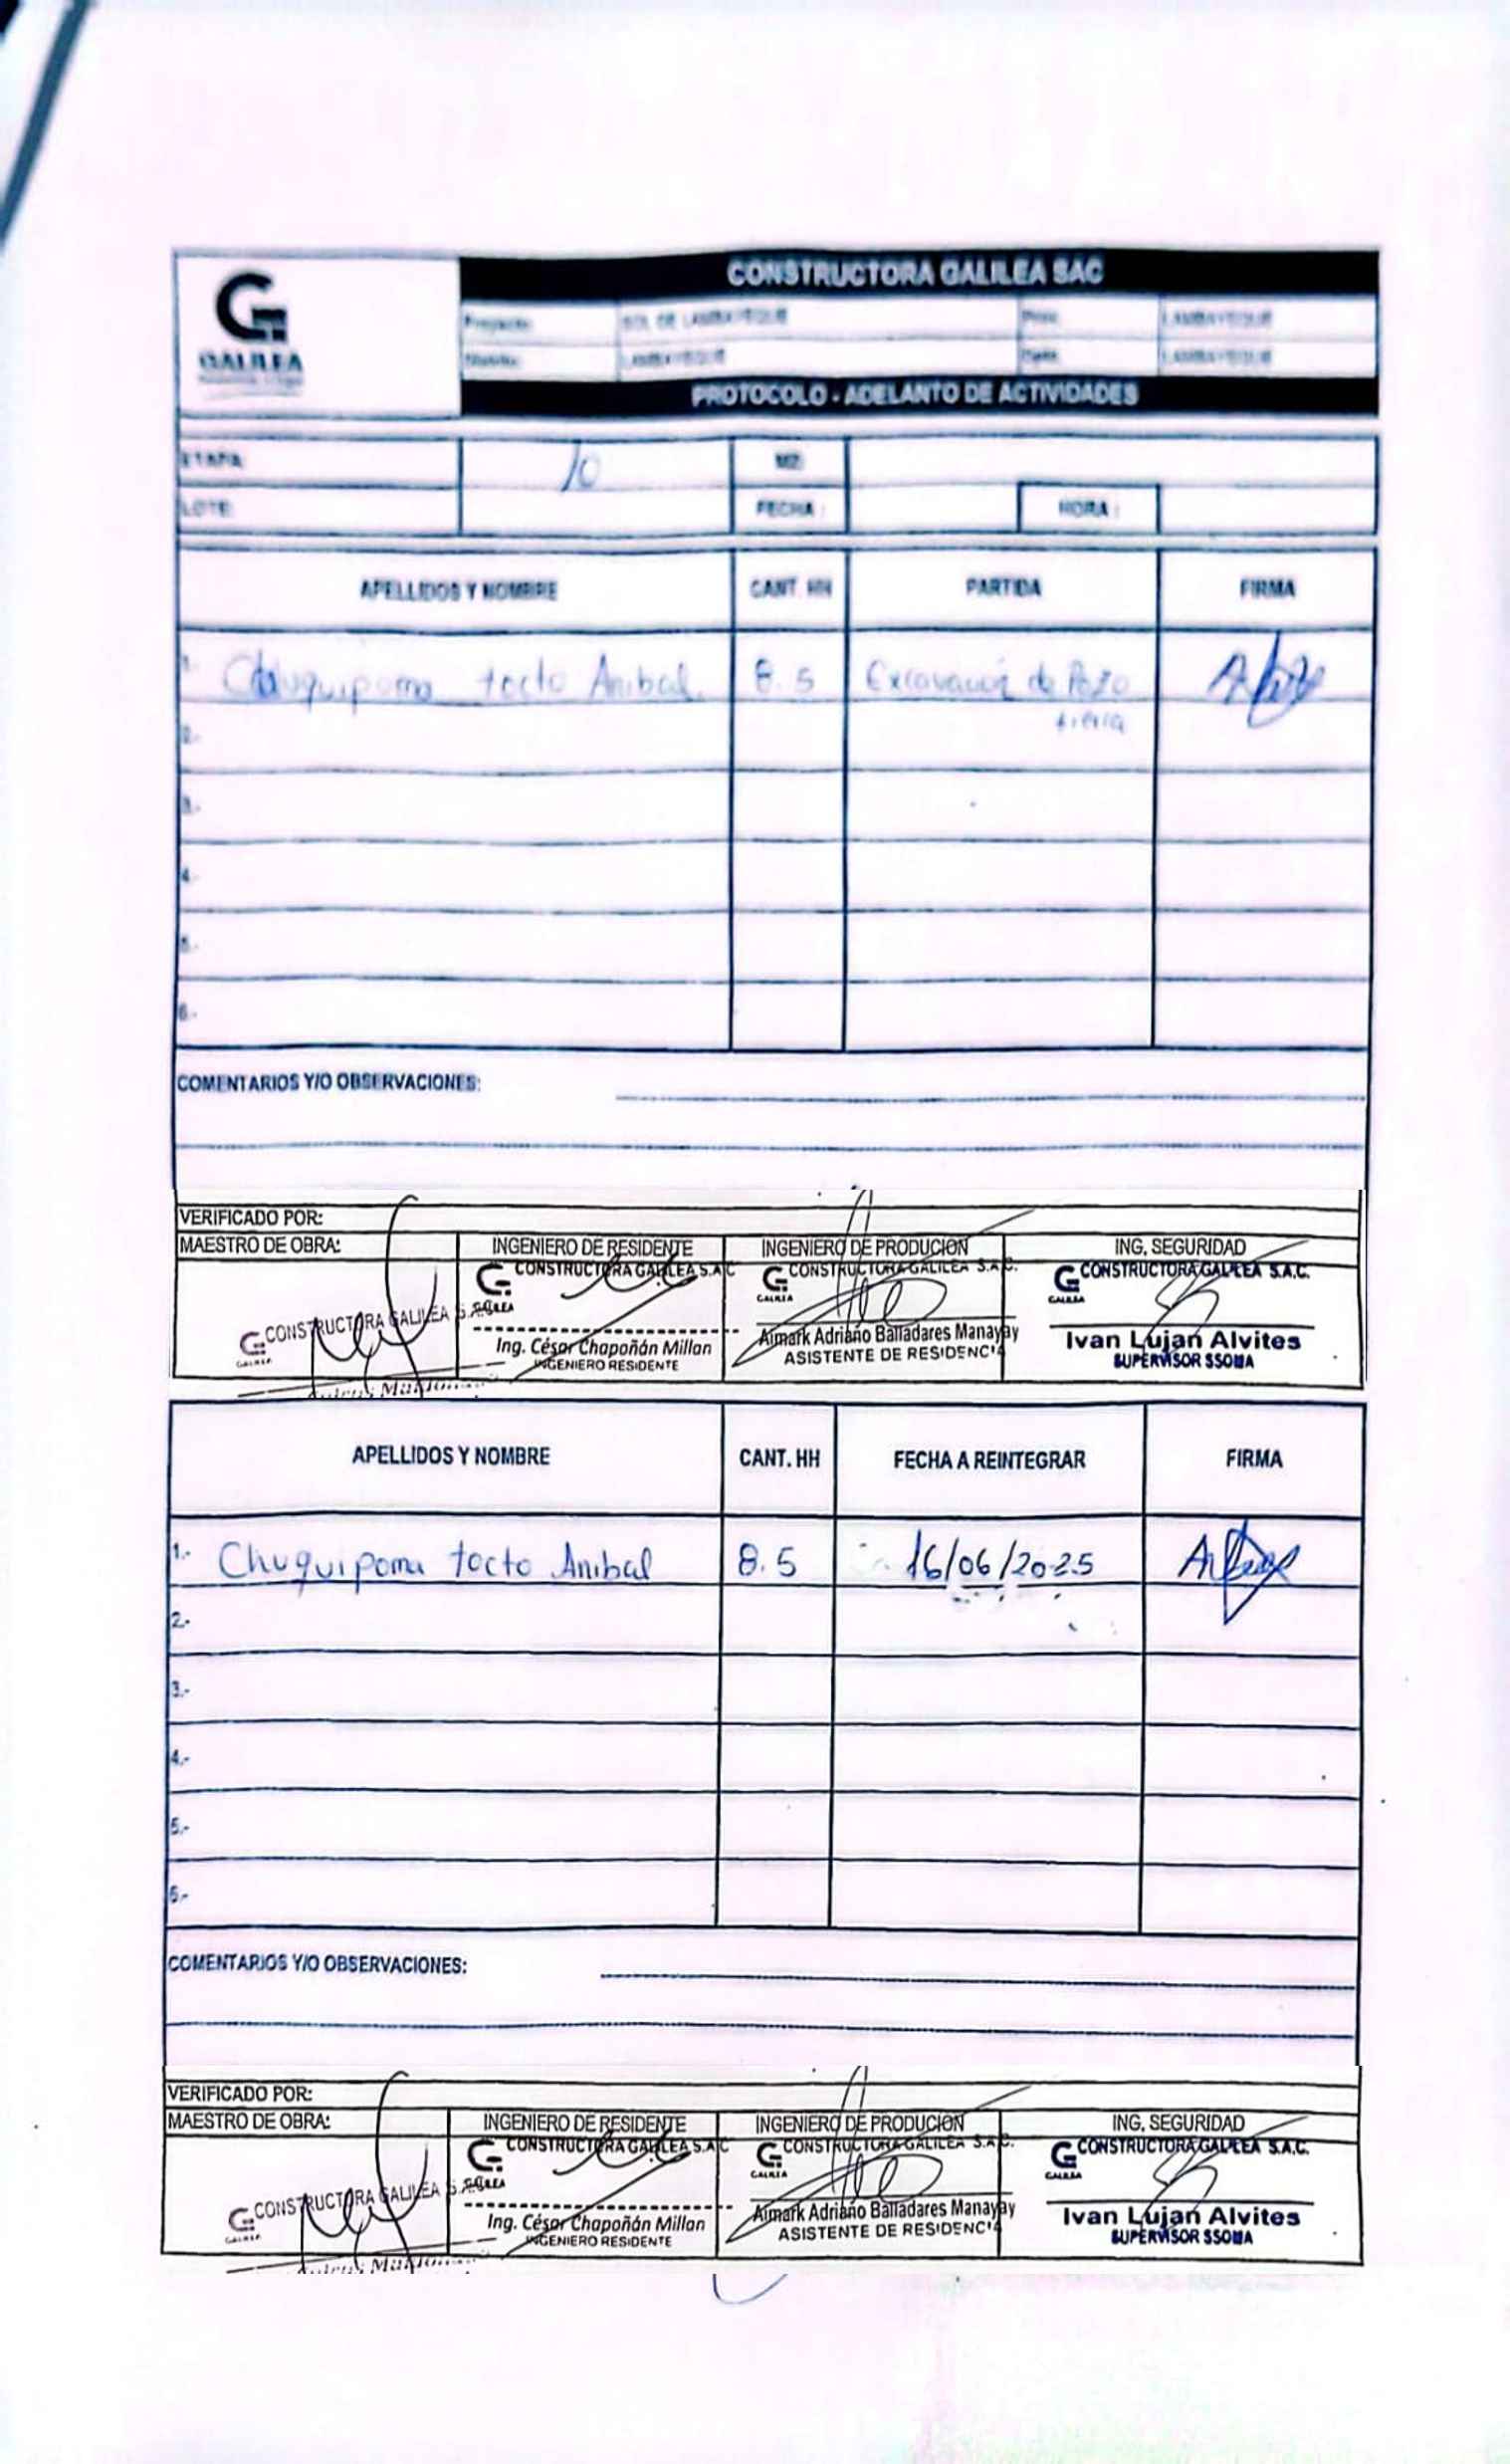 GALILEA
CONSTRUCTORA GALILEA SAC
Proyecto: SOL DE LAMBAYEQUE Prov. LAMBAYEQUE
Distrito: LAMBAYEQUE Dpto. LAMBAYEQUE
PROTOCOLO - ADELANTO DE ACTIVIDADES
ETAPA 10 MZ:
LOTE FECHA : HORA :
APELLIDOS Y NOMBRE CANT. HH PARTIDA FIRMA
1.- Chuquipoma tocto Anibal. 8.5 Excavación de Pozo
tierra
2.-
3.-
4.-
5.-
6.-
COMENTARIOS Y/O OBSERVACIONES:
VERIFICADO POR:
MAESTRO DE OBRA: INGENIERO DE RESIDENTE INGENIERO DE PRODUCION ING. SEGURIDAD
CONSTRUCTORA GALILEA S.A.C. CONSTRUCTORA GALILEA S.A.C CONSTRUCTORA GALILEA S.A.C. CONSTRUCTORA GALILEA S.A.C.
GALILEA GALILEA GALILEA GALILEA
Ing. César Chapoñán Millan Aimark Adriano Balladares Manayay Ivan Lujan Alvites
INGENIERO RESIDENTE ASISTENTE DE RESIDENCIA SUPERVISOR SSOMA
APELLIDOS Y NOMBRE CANT. HH FECHA A REINTEGRAR FIRMA
1.- Chuquipoma tocto Anibal 8.5 16/06/2025
2.-
3.-
4.-
5.-
6.-
COMENTARIOS Y/O OBSERVACIONES:
VERIFICADO POR:
MAESTRO DE OBRA: INGENIERO DE RESIDENTE INGENIERO DE PRODUCION ING. SEGURIDAD
CONSTRUCTORA GALILEA S.A.C. CONSTRUCTORA GALILEA S.A.C CONSTRUCTORA GALILEA S.A.C. CONSTRUCTORA GALILEA S.A.C.
GALILEA GALILEA GALILEA GALILEA
Ing. César Chapoñán Millan Aimark Adriano Balladares Manayay Ivan Lujan Alvites
INGENIERO RESIDENTE ASISTENTE DE RESIDENCIA SUPERVISOR SSOMA